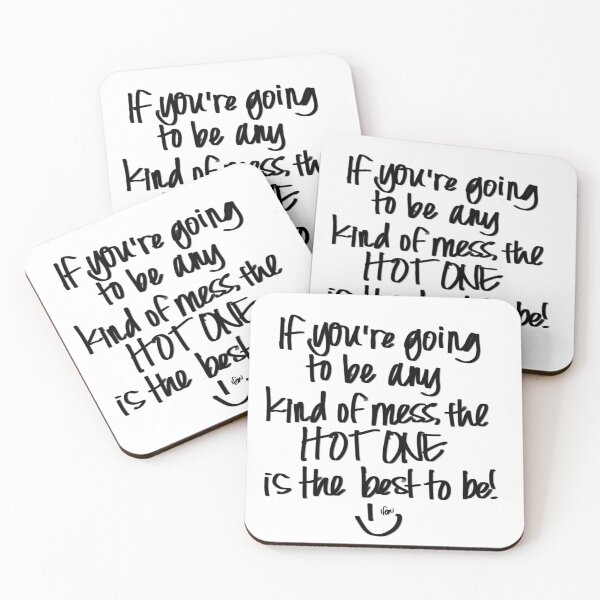 If you're going
to be any
kind of mess, th
ONE
If you're going
to be any
kind of mess, the
HOT ONE
is the be!
If you're going
to be any
kind of mess, the
HOT ONE
is the best
If you're going
to be any
kind of mess, the
HOT ONE
is the best to be!